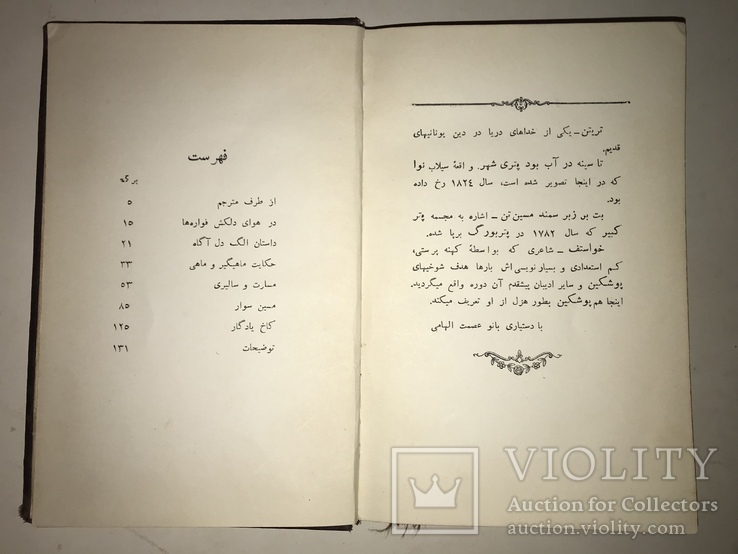 تریتن ـ یکی از خداهای دریا در دین یونانیهای
قدیم.
تا سینه در آب بود پتری شهر. واقعهٔ سیلاب نوا
که در اینجا تصویر شده است، سال ۱۸۲٤ رخ داده
بود.
بت بر زبر سمند مسین تن ـ اشاره به مجسمه پتر
کبیر که سال ۱۷۸۲ در پتربورگ برپا شده.
خواستف ـ شاعری که بواسطهٔ کهنه پرستی،
کم استعدادی و بسیار نویسی‌اش بارها هدف شوخیهای
پوشکین و سایر ادیبان پیشقدم آن دوره واقع میگردید.
اینجا هم پوشکین بطور هزل از او تعریف میکند.
با دستیاری بانو عصمت الهامی
فهرست
برگه
از طرف مترجم ۵
در هوای دلکش فواره‌ها ۱۵
داستان الگ دل آگاه ۲۱
حکایت ماهیگیر و ماهی ۳۳
مسارت و سالیری ۵۳
مسین سوار ۸۵
کاخ یادگار ۱۲۵
توضیحات ۱۳۱
VIOLITY
Auction for Collectors
auction.violity.com